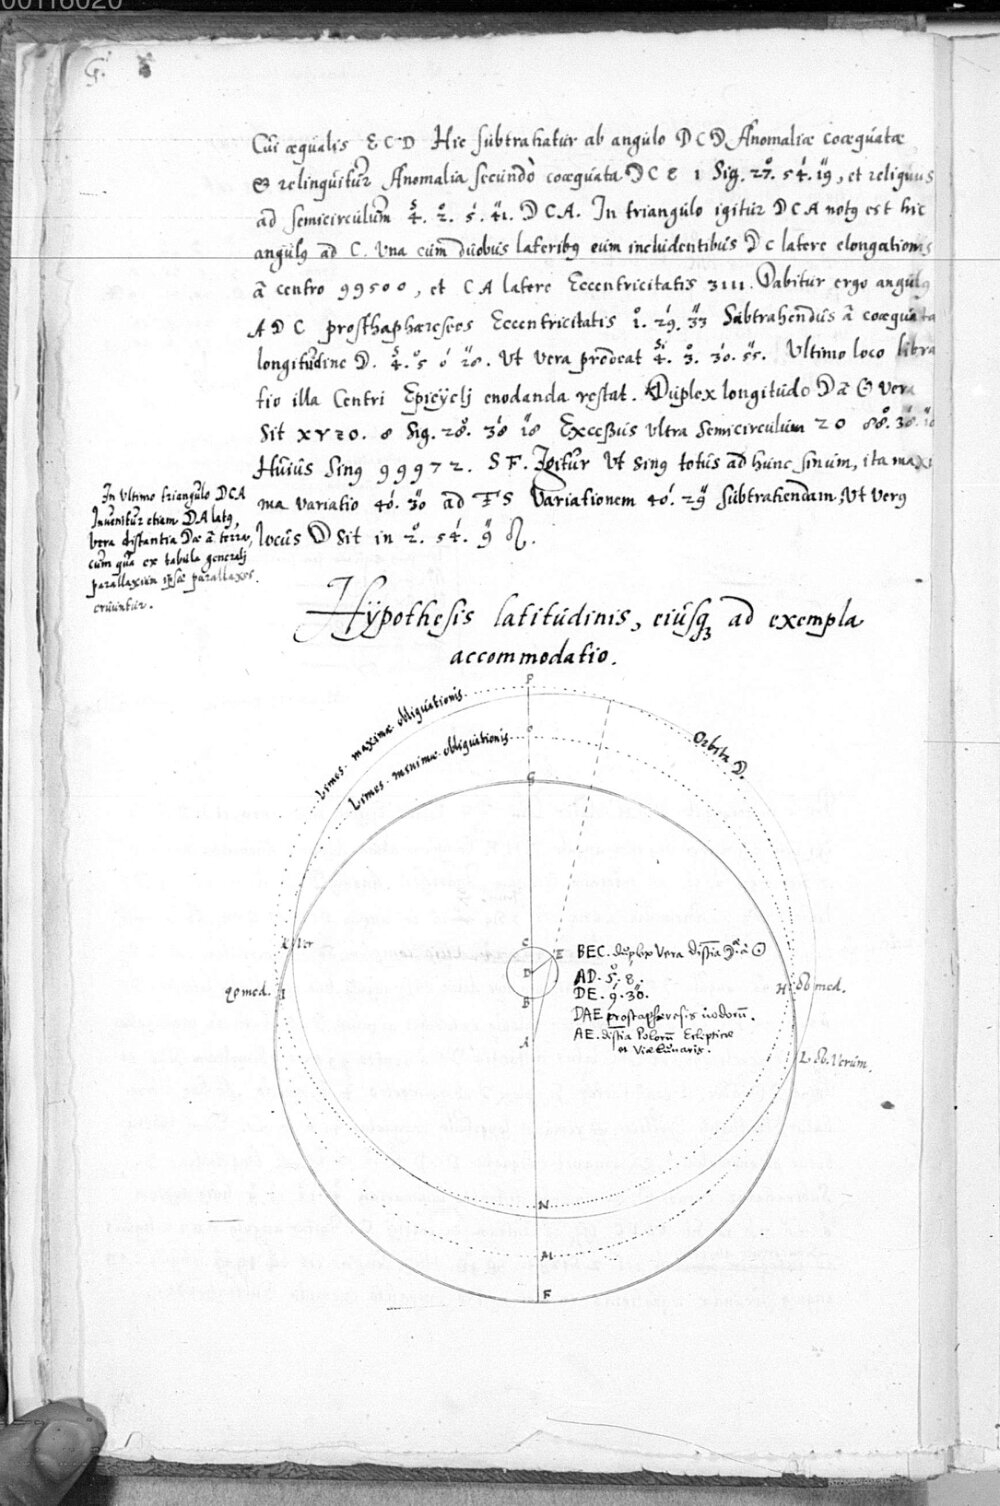 00116020
G.
Cui æqualis ECD Hic subtrahatur ab angulo DCD Anomaliæ coæquatæ
& relinquitur Anomalia secundò coæquata DCE 1 Sig. 27. 54. 19, et reliquus
ad semicirculum 4. 2. 5. 41. DCA. In triangulo igitur DCA notq est hic
angulq ad C. Una cum duobus lateribq eum includentibus DC latere elongationis
à centro 99500, et CA latere Eccentricitatis 3111. Dabitur ergo angulq
ADC prosthaphæreseos Eccentricitatis 1. 29. 33 Subtrahendus à coæquata
longitudine D. 4. 5 0 28. Ut vera prodeat 4. 3. 30. 55. Ultimo loco libra
tio illa Centri Epicyclj enodanda restat. Duplex longitudo Dæ à ☉ vera
Sit XYZO. 8 Sig. 28. 38 18 Excessus ultra Semicirculum ZO 88. 38. 18
Huius Sinq 99972. SF. Igitur Ut sinq totus ad hunc sinum, ita maxi
ma variatio 40. 30 ad TS Variationem 40. 29 subtrahendam, Ut verq
locus D Sit in 2. 54. 9 ♌.
In ultimo triangulo DCA
Invenitur etiam DA latq,
vera distantia Dæ à terra,
cum qua ex tabula generalj
parallaxium ipsæ parallaxes
eruuntur.
Hypothesis latitudinis, eiusq ad exempla
accommodatio.
P
Limes maximæ obliquationis
Limes minimæ obliquationis
O
Orbita D.
G
K ver
C
E
D
B
A
BEC. duplex Vera distia D. à ☉
AD. 5. 8.
DE. 9. 30.
DAE prostaphæresis nodorū.
AE. distia Polorū Eclipticæ
et Viæ Lunaris.
☋ med. I
H ☊ med.
L ☊. Verum.
N
M
F